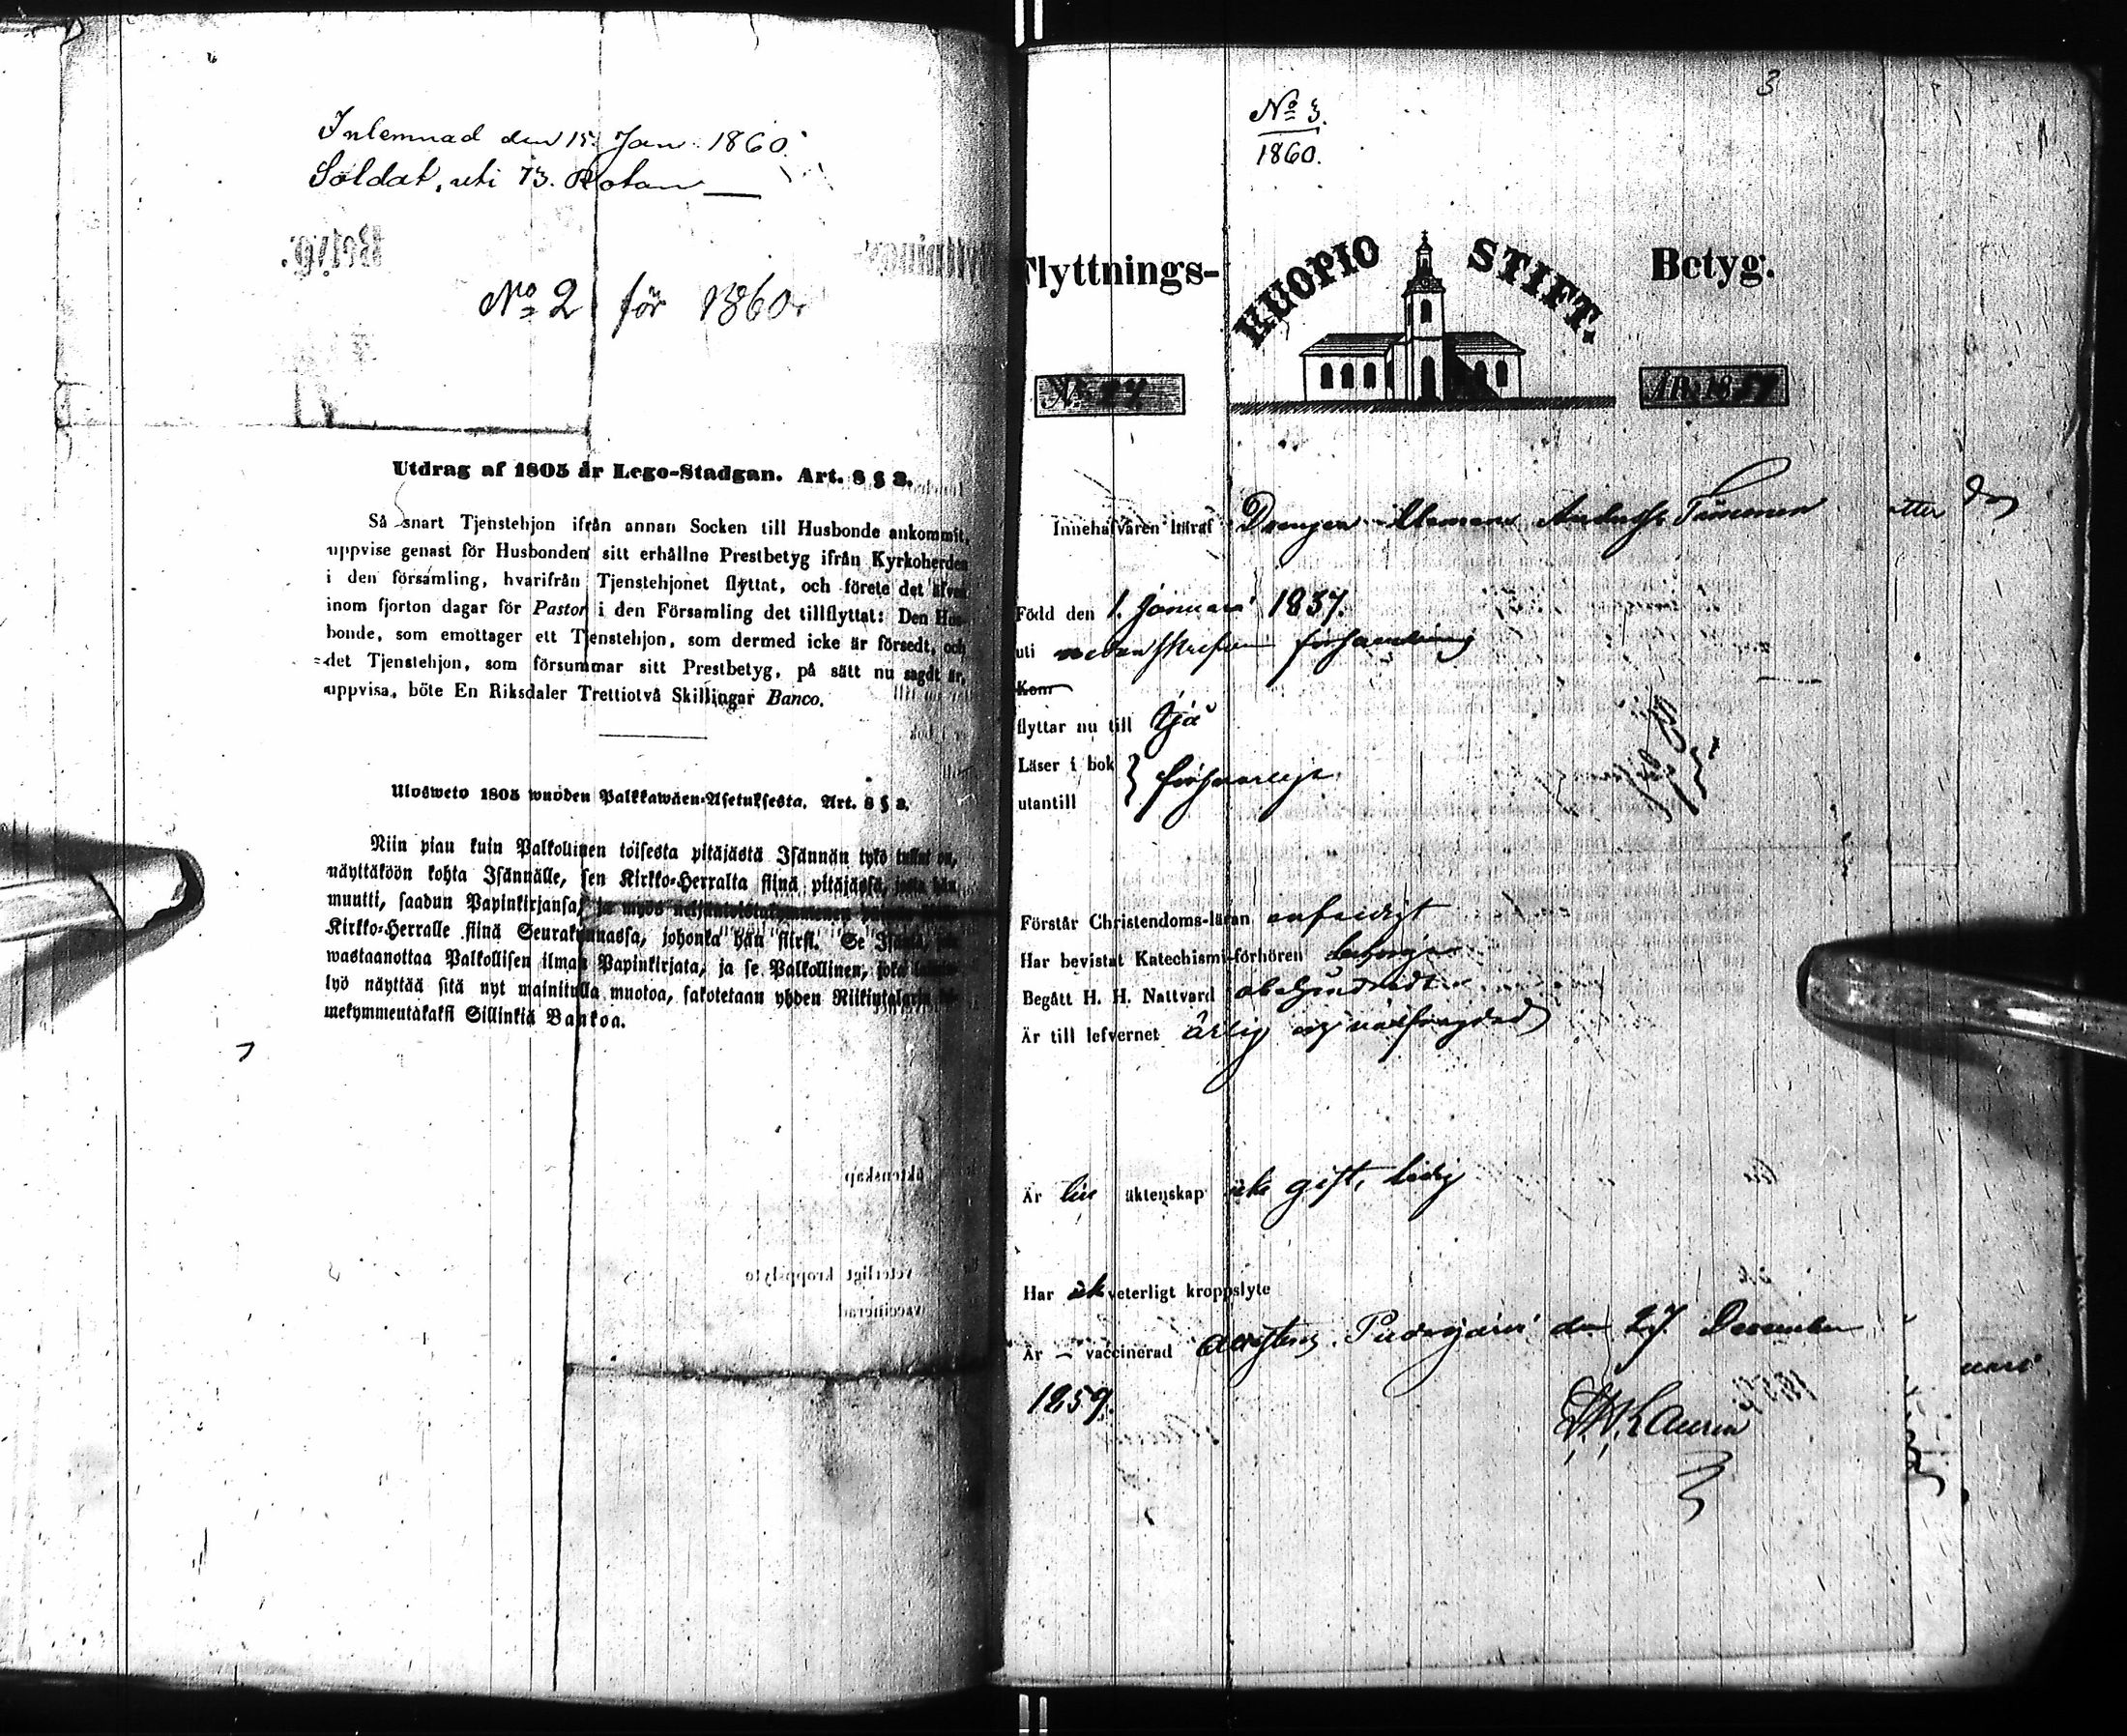 Inlemnad den 15. Jan. 1860.
Soldat, uti 73. Rotan
No 2 för 1860.
Utdrag af 1805 år Lego-Stadgan. Art. 8 § 3.
Så snart Tjenstehjon ifrån annan Socken till Husbonde ankommit,
uppvise genast för Husbonden sitt erhållne Prestbetyg ifrån Kyrkoherden
i den församling, hvarifrån Tjenstehjonet flyttat, och förete det äfven
inom fjorton dagar för Pastor i den Församling det tillflyttat: Den Hus-
bonde, som emottager ett Tjenstehjon, som dermed icke är försedt, och
det Tjenstehjon, som försummar sitt Prestbetyg, på sätt nu sagdt är,
uppvisa, böte En Riksdaler Trettiotvå Skillingar Banco.
Ulosweto 1805 wuoden Palkkawäen-Asetuksesta. Art. 8 § 3.
Niin pian kuin Palkollinen toisesta pitäjästä Isännän tykö tullut on,
näyttäköön kohta Isännälle, sen Kirkko-Herralta siinä pitäjässä, josta hän
muutti, saadun Papinkirjansa, ja myös neljäntoistakymmenen
Kirkko-Herralle siinä Seurakunnassa, johonka hän siirsi. Se Isäntä, joka
wastaanottaa Palkollisen ilman Papinkirjata, ja se Palkollinen, joka
lyö näyttää sitä nyt mainitulla muotoa, sakotetaan yhden Riikintalarin
mekymmentäkaksi Sillinkiä Bankoa.
3
No 3.
1860.
Flyttnings- KUOPIO STIFT. Betyg.
No 27. ÅR 1859
Innehafvaren häraf Drengen Andersson
Född den 1. Januari 1837.
uti församling
Kom
flyttar nu till
Läser i bok
utantill } försvarligt
Förstår Christendoms-läran
Har bevistat Katechismi-förhören
Begått H. H. Nattvard obehindradt
Är till lefvernet ärlig och
Är till äktenskap icke gift, ledig
Har ick veterligt kroppslyte
Är – vaccinerad attesteras. Pudasjärvi den 27. December
1859.